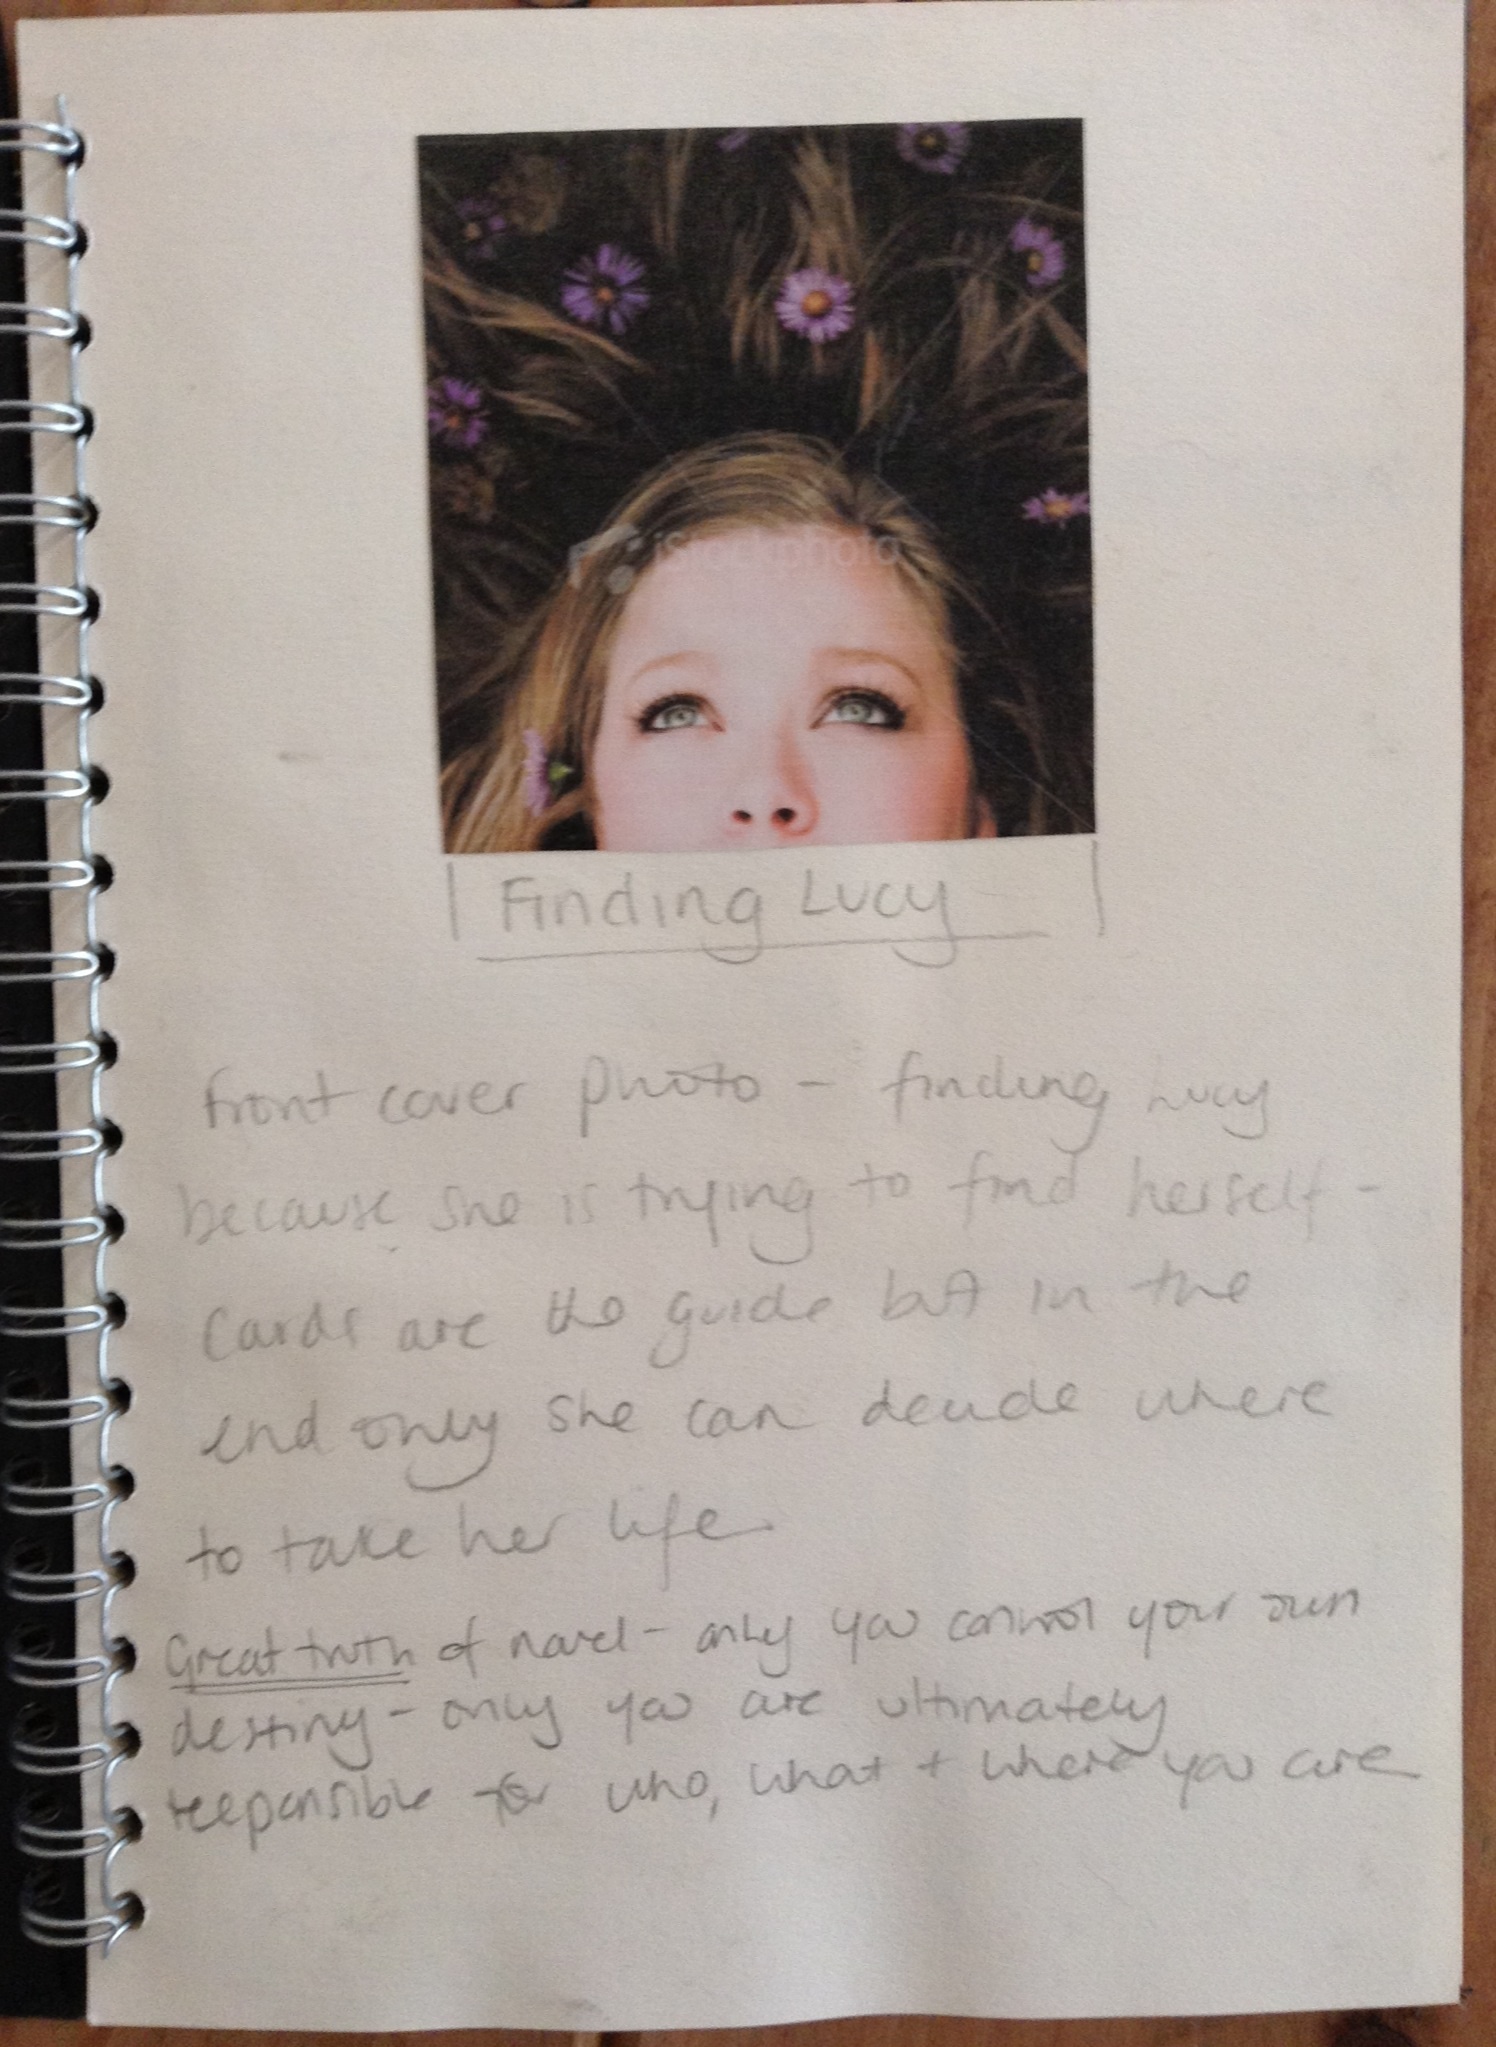 iStockphoto
Finding Lucy
front cover photo - finding Lucy
because she is trying to find herself -
Cards are the guide but in the
end only she can decide where
to take her life.
Great truth of novel - only you control your own
destiny - only you are ultimately
responsible for who, what + where you are